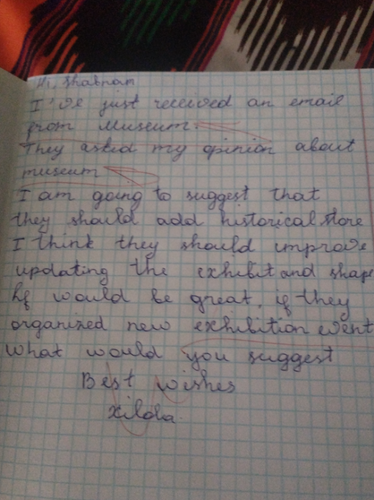 Hi, Shabnam
I've just received an email
from Museum.
They asked my opinion about
museum
I am going to suggest that
they should add historical store
I think they should improve
updating the exhibit and shape
It would be great, if they
organized new exhibition event
what would you suggest
Best wishes
Xilola.